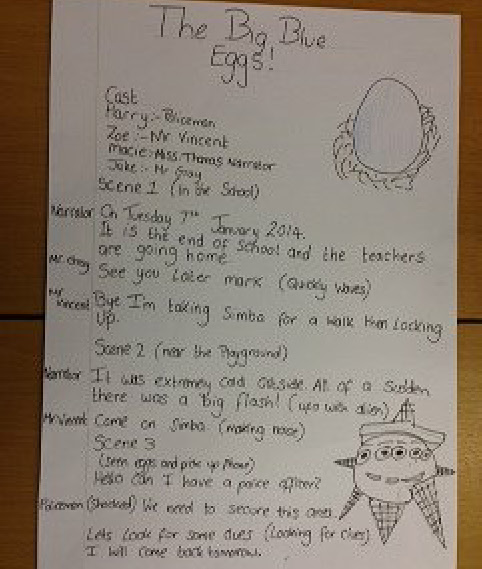 The Big Blue
Eggs!
Cast
Harry:- Policeman
Zoe:- Mr Vincent
Macie:- Miss Thomas Narrator
Jake:- Mr Gray
Scene 1 (in the School)
Narrator On Tuesday 7th January 2014.
It is the end of school and the teachers
are going home
Mr. Gray See you later mark (Quickly waves)
Mr Vincent Bye I'm taking Simba for a walk then locking
up.
Scene 2 (near the Playground)
Narrator It was extremey cold outside. All of a Sudden
there was a big flash! (ufo with alien)
Mr Vincent Come on Simba (making noise)
Scene 3
(seen eggs and pick up phone)
Hello Can I have a police officer?
Policeman (Shocked) We need to secure this area.
Lets look for some clues (Looking for clues)
I will come back tomorrow.